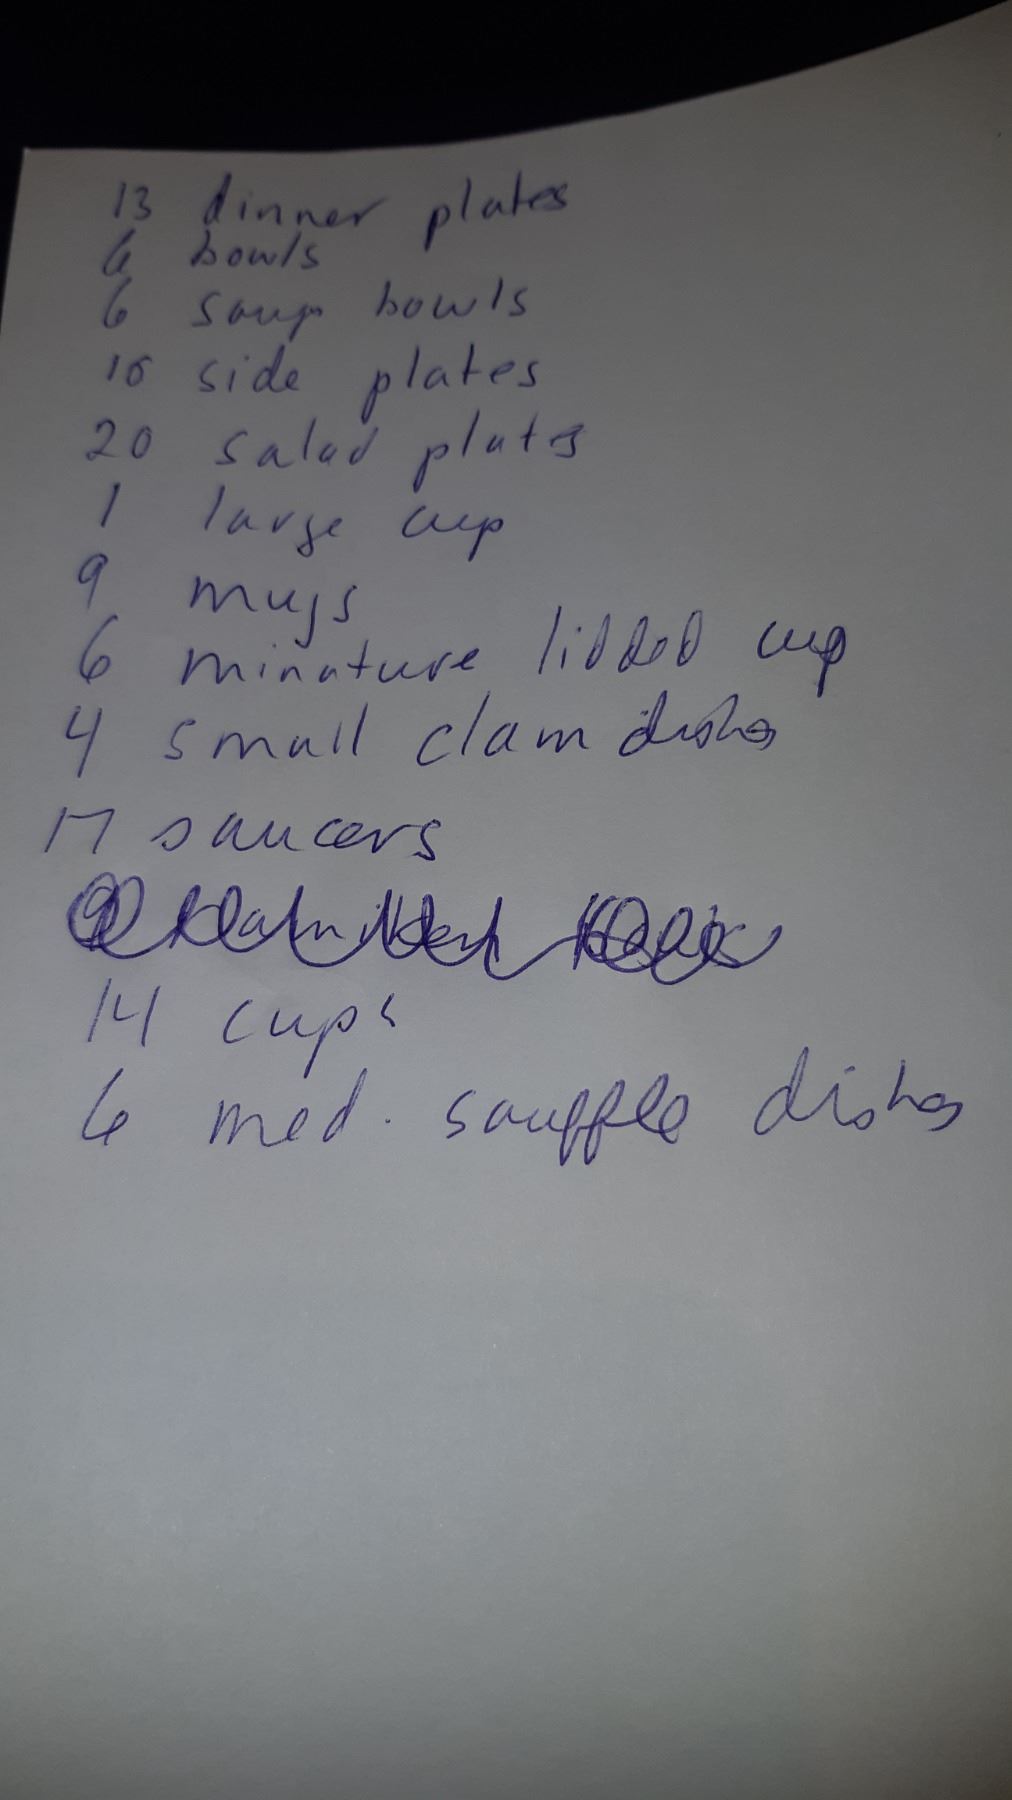 13 dinner plates
6 bowls
6 soup bowls
side plates
20 salad plates
1 large cup
9 mugs
6 minature lidded cup
4 small clam dishes
17 saucers
14 cups
6 med. souffle dishes